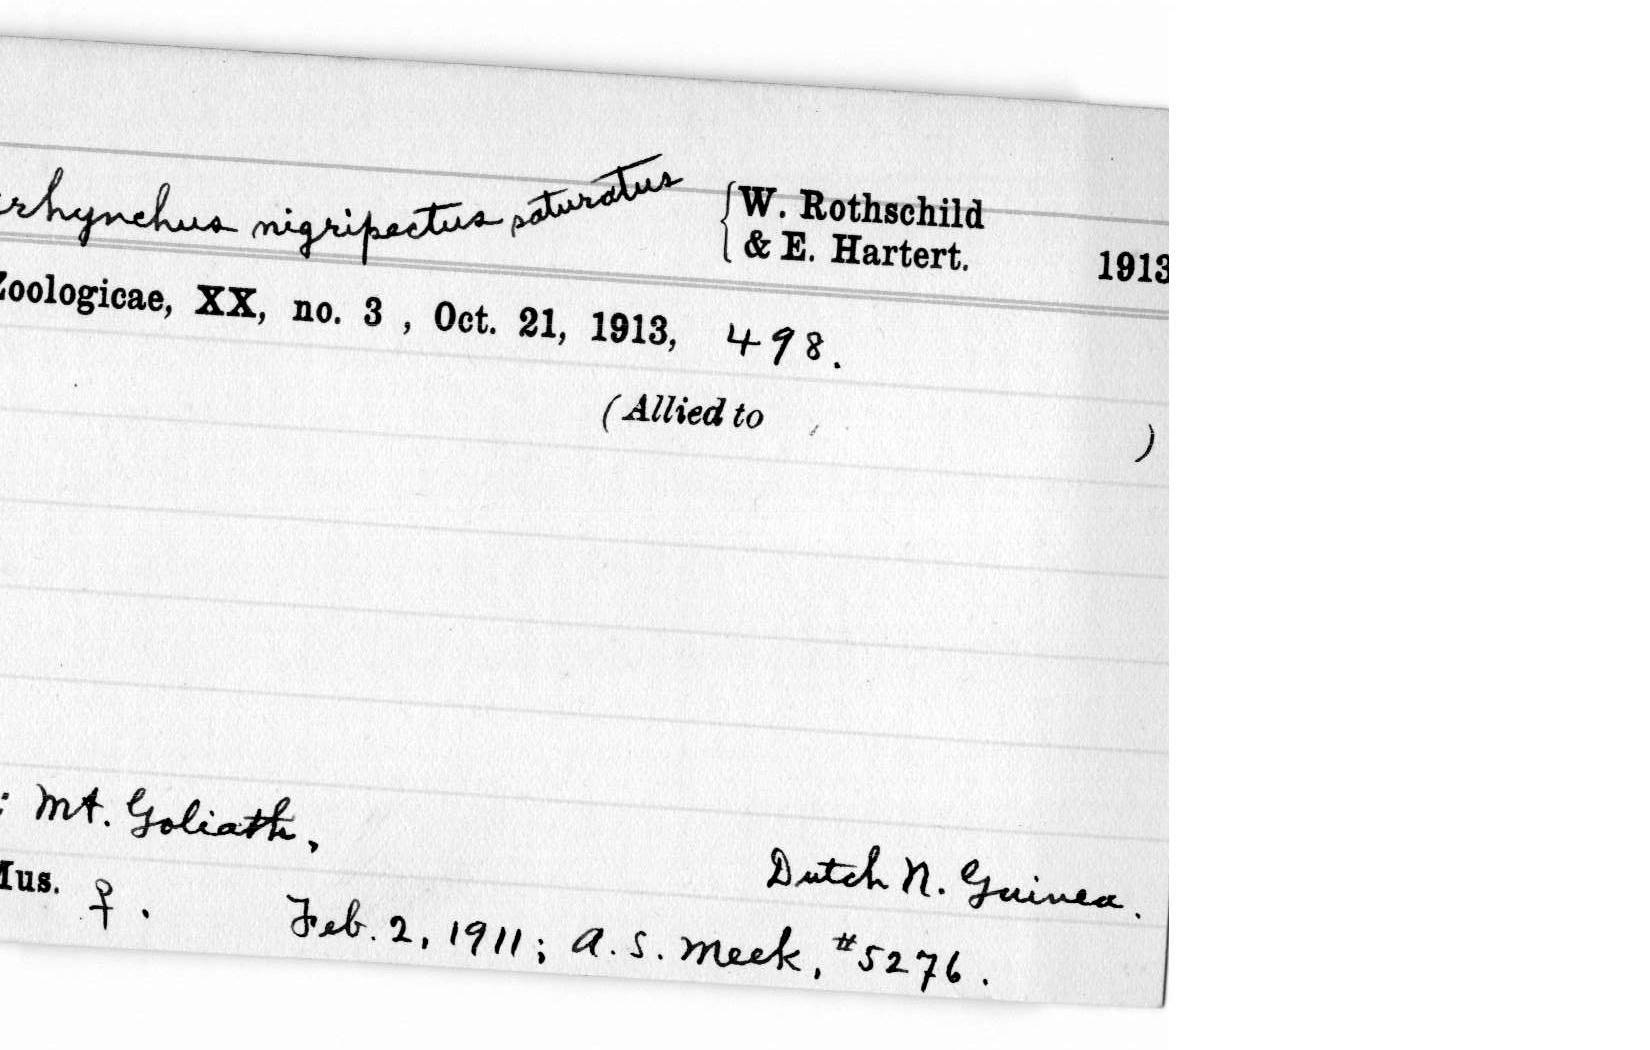 rhynchus nigripectus saturatus { W. Rothschild & E. Hartert. 1913
Zoologicae, XX, no. 3 , Oct. 21, 1913, 498.
(Allied to )
: Mt. Goliath,
Dutch N. Guinea.
Mus. ♀. Feb. 2, 1911; A. S. Meek, #5276.